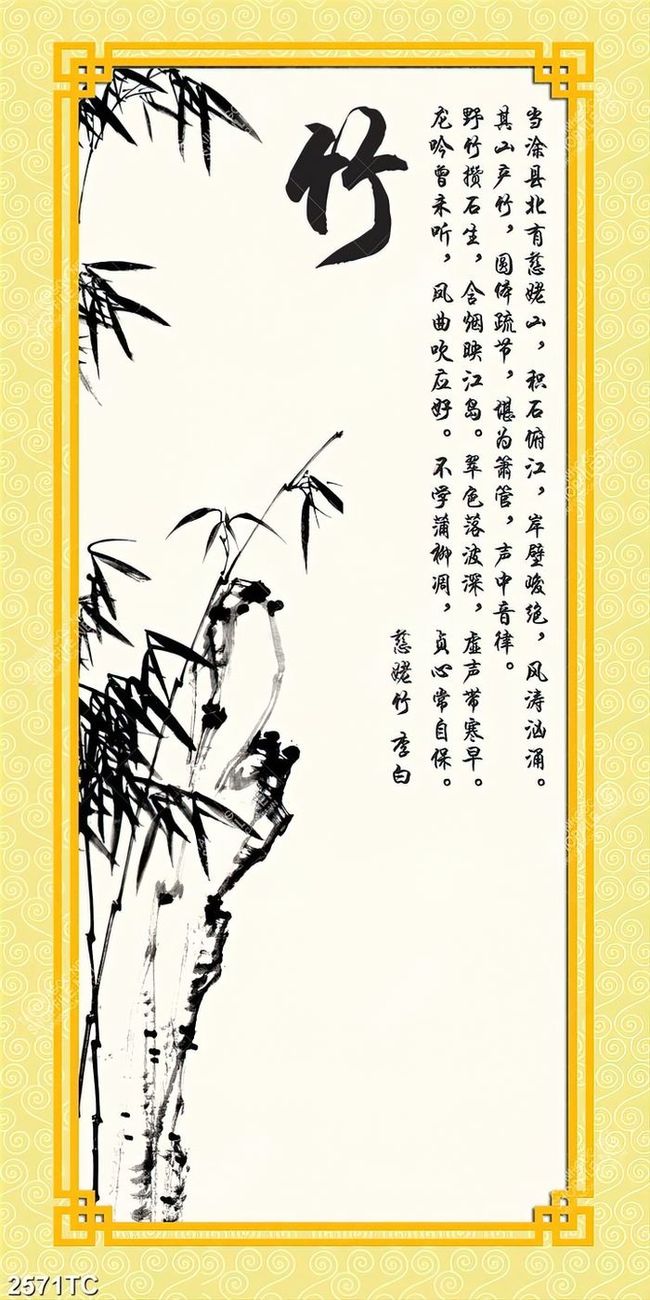 竹
当涂县北有慈姥山，积石俯江，岸壁峻绝，风涛汹涌。
其山产竹，圆体疏节，堪为箫管，声中音律。
野竹攒石生，含烟映江岛。翠色落波深，虚声带寒早。
龙吟曾未听，凤曲吹应好。不学蒲柳凋，贞心常自保。
慈姥竹 李白
2571TC